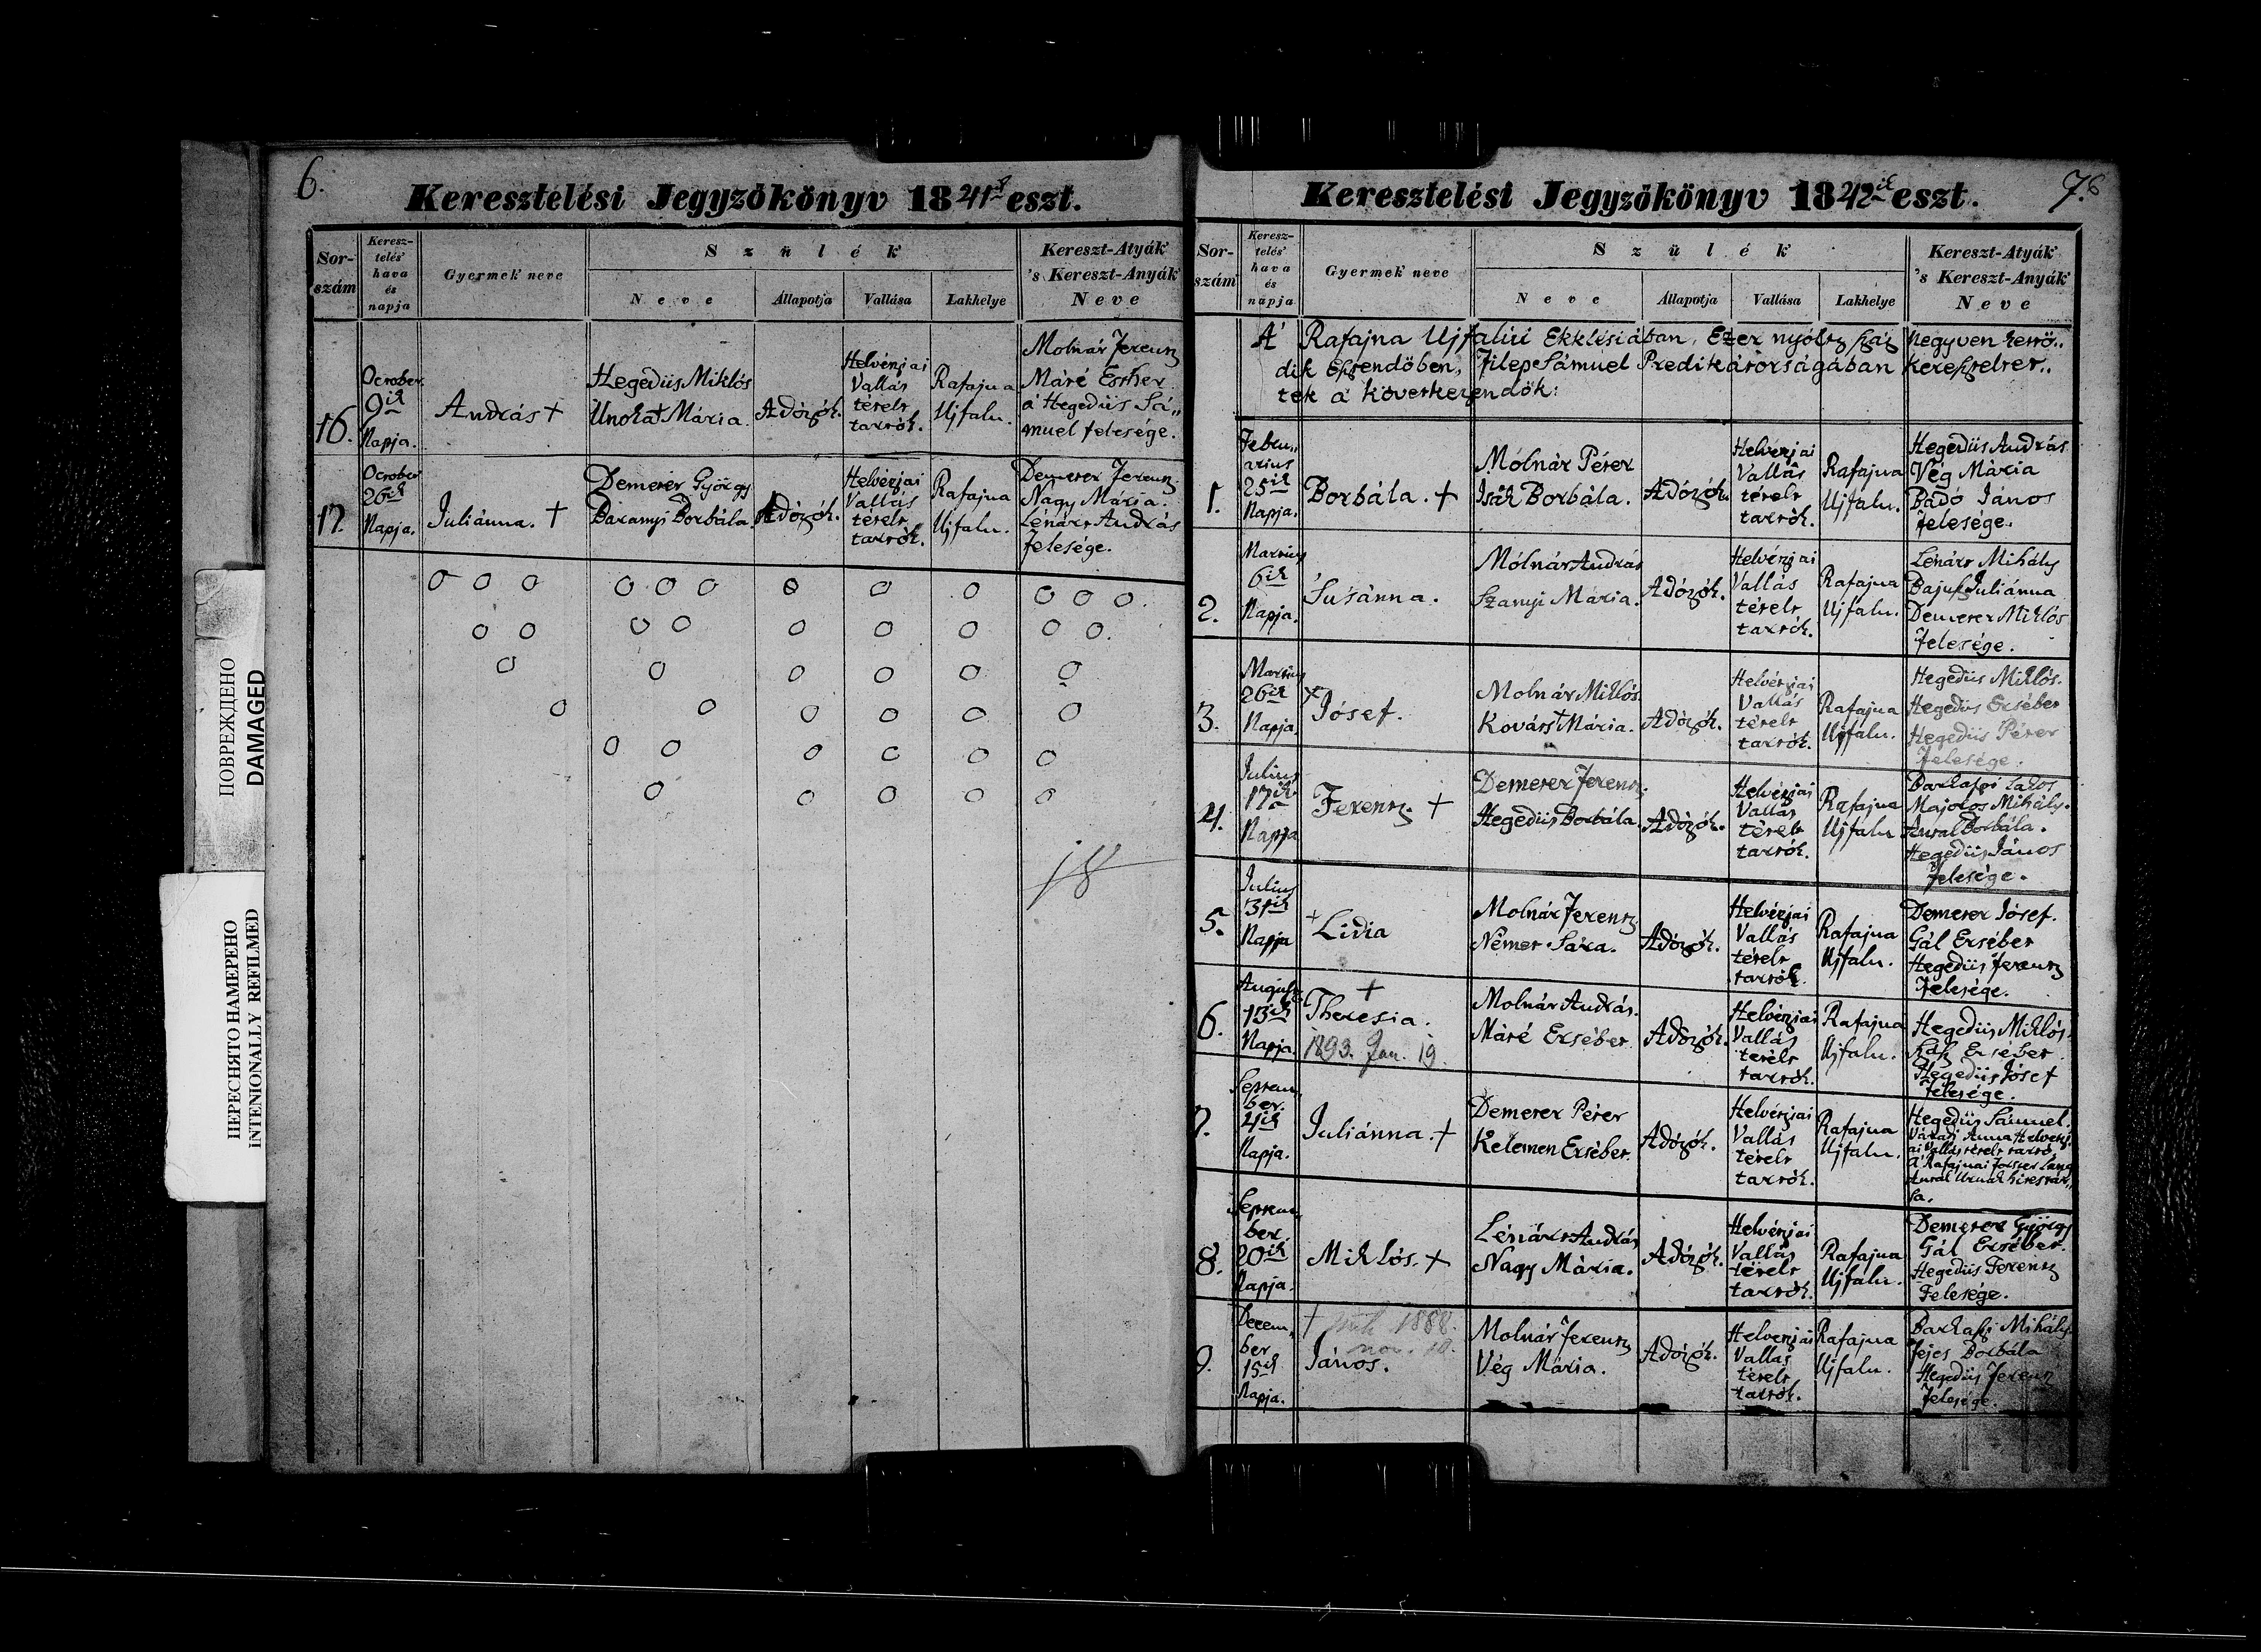 6.
Keresztelési Jegyzőkönyv 1841k eszt.
Sor-
szám
Keresz-
telés'
hava
és
napja
Gyermek' neve
Szülék'
Neve
Állapotja
Vallása
Lakhelye
Kereszt-Atyák'
's Kereszt-Anyák'
Neve
16.
October
9ik
Napja.
András +
Hegedüs Miklós
Unoka + Mária.
Adózók.
Helvétziai
Vallás
tételt
tartók.
Rafajna
Ujfalu.
Molnár Ferentz
Máré Esther
a' Hegedüs Sá„
muel felesége.
17.
October
26ik
Napja.
Juliánna. +
Demeter György
Baranyi Borbála.
Adózók.
Helvétziai
Vallás
tételt
tartók.
Rafajna
Ujfalu.
Demeter Ferentz
Nagy Mária.
Lénárt András
felesége.
18
ПОВРЕЖДЕНО
DAMAGED
ПЕРЕСНЯТО НАМЕРЕНО
INTENIONALLY REFILMED
Keresztelési Jegyzőkönyv 1842ik eszt.
7.
Sor-
szám
Keresz-
telés'
hava
és
napja
Gyermek' neve
Szülék'
Neve
Állapotja
Vallása
Lakhelye
Kereszt-Atyák'
's Kereszt-Anyák'
Neve
A' Rafajna Ujfalusi Ekklésiában, Ezer nyóltz száz negyven kettő„
dik Esztendőben, Filep Sámuel Predikátorságában Kereszteltet„
tek a' következendők:
1.
Febru„
arius
25ik
Napja.
Borbála. +
Mólnár Péter
Isák Borbála.
Adózók.
Helvétziai
Vallás
tételt
tartók.
Rafajna
Ujfalu.
Hegedüs András
Vég Mária
Badó János
felesége.
2.
Martius
6ik
Napja.
Susánna.
Mólnár András
Szanyi Mária.
Adózók.
Helvétziai
Vallás
tételt
tartók.
Rafajna
Ujfalu.
Lénárt Mihály
Bajusz Juliánna
Demeter Miklós
felesége.
3.
Martius
26ik
Napja
+ Jósef.
Molnár Miklós
Kováts + Mária.
Adózók.
Helvétziai
Vallás
tételt
tartók.
Rafajna
Ujfalu.
Hegedüs Miklós.
Hegedüs Ersébet
Hegedüs Péter
felesége.
4.
Julius
17ik
Napja
Ferentz. +
Demeter Ferentz.
Hegedüs Borbála.
Adózók.
Helvétziai
Vallás
tételt
tartók.
Rafajna
Ujfalu
Barkaszi Lajos
Majoros Mihály.
Antal Borbála.
Hegedüs János
felesége.
5.
Julius
31ik
Napja
+ Lidia
Molnár Ferentz
Német Sára.
Adózók.
Helvétziai
Vallás
tételt
tartók.
Rafajna
Ujfalu.
Demeter Jósef.
Gál Ersébet
Hegedüs Ferentz
felesége.
6.
August.
13ik
Napja.
+
Theresia.
1893. Jan. 19.
Molnár András.
Máré Ersébet
Adózók.
Helvétziai
Vallás
tételt
tartók.
Rafajna
Ujfalu.
Hegedüs Miklós.
Ersébet
Hegedüs Jósef
felesége.
7.
Septem„
ber.
4ik
Napja.
Juliánna. +
Demeter Péter
Kelemen Ersébet.
Adózók.
Helvétziai
Vallás
tételt
tartók.
Rafajna
Ujfalu.
Hegedüs Sámuel.
Váradi Anna Helvétz„
ai Vallás tételt tartó,
a' Rafajnai
Antal Urnak hitestár„
sa.
8.
Septem„
ber.
20ik
Napja.
Miklós. +
Lénárt András
Nagy Mária.
Adózók.
Helvétziai
Vallás
tételt
tartók.
Rafajna
Ujfalu.
Demeter György
Gál Ersébet.
Hegedüs Ferentz
Felesége.
9.
Decem„
ber
15ik
Napja.
+ 1888.
nov. 10.
János.
Molnár Ferentz
Vég Mária.
Adózók.
Helvétziai
Vallás
tételt
tartók.
Rafajna
Ujfalu.
Barkaszi Mihály
Fejes Borbála
Hegedüs Ferentz
felesége.